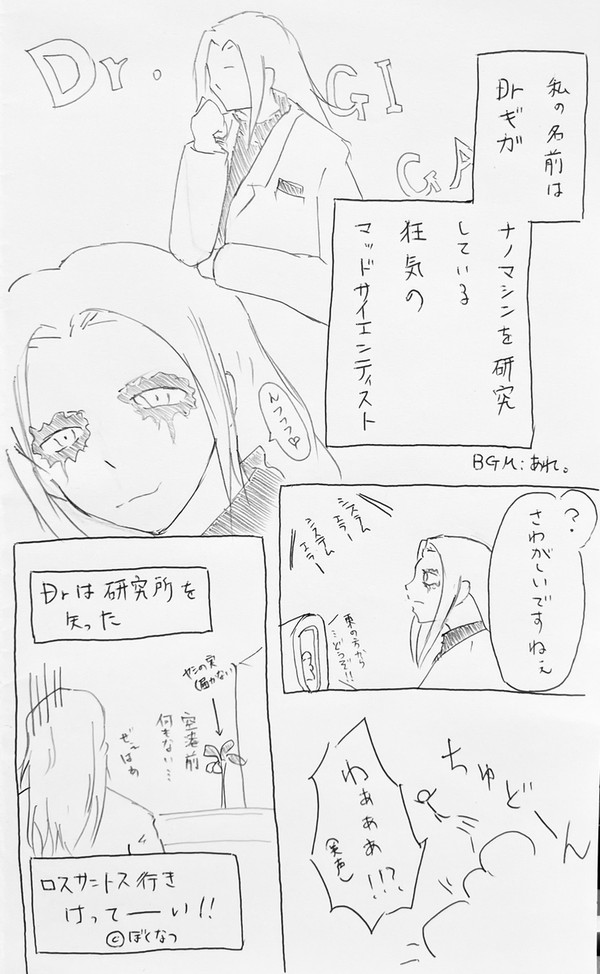 Dr. GIGA
私の名前は
Drギガ
ナノマシンを研究
している
狂気の
マッドサイエンティスト
んフフフ♡
BGM:あれ。
?
さわがしいですねぇ
システム
エラー
システム
エラー
東の方から
…どうぞ!!
ちゅどーん
わぁぁぁ!!?
(笑声)
Drは研究所を
失った
ヤシの実
(届かない)
空港前
何もない…
ぜーはぁ
ロスサントス行き
けってーい!!
©ぼくなつ